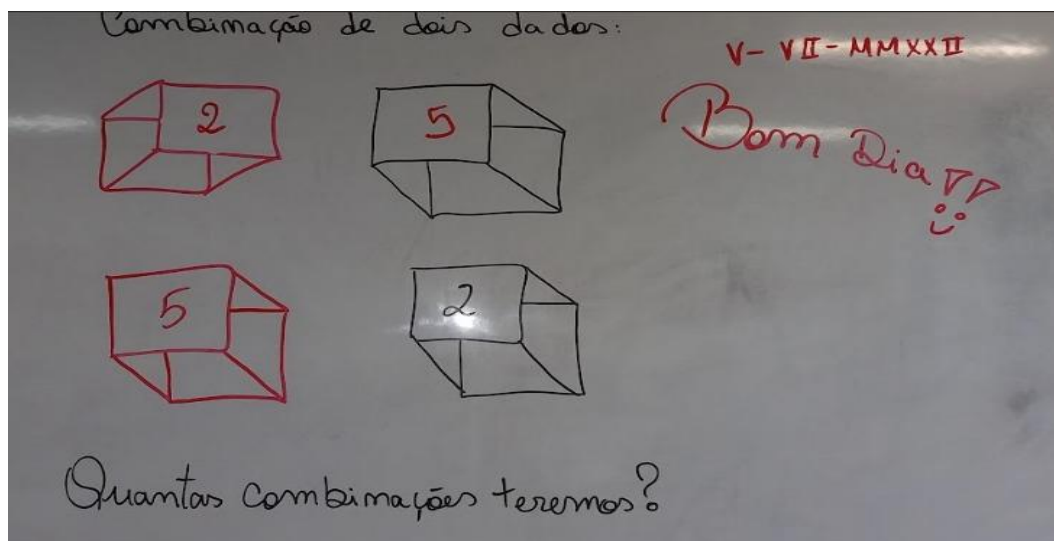 Combinação de dois dados:
V - VII - MMXXII
Bom Dia!!
2
5
5
2
Quantas combinações teremos?